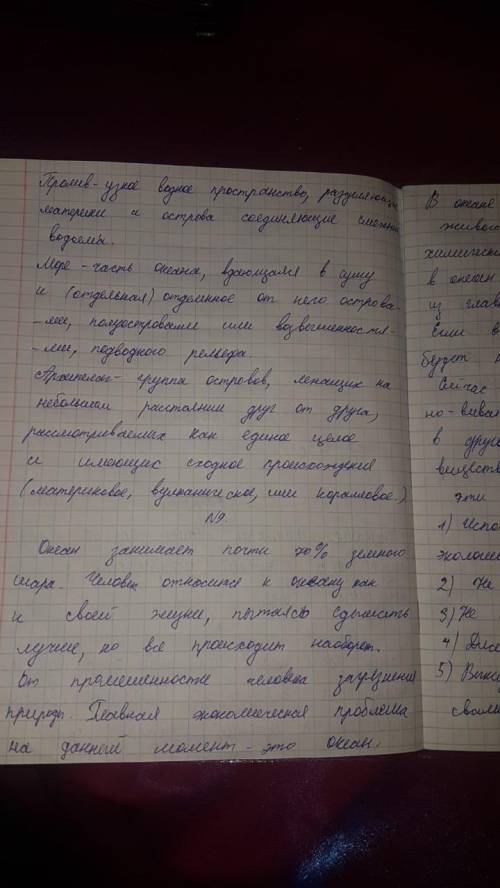 Пролив - узкое водное пространство, разделяющие
материки и острова соединяющие смежные
водоемы.
Море - часть океана, вдающаяся в сушу
и (отдельная) отделенное от него острова-
-ми, полуостровами или возвышенностя-
-ми, подводного рельефа.
Архипелаг - группа островов, лежащих на
небольшом расстоянии друг от друга,
рассматриваемых как единое целое
и имеющих сходное происхождения
(материковое, вулканическое, или коралловое.)
№9.
Океан занимает почти 70% земного
шара. Человек относится к океану как
к своей жизни, пытаясь сделать
лучше, но все происходит наоборот.
От промешенности человека загрязнения
природы. Главная экономическая проблема
на данный момент - это океан.
В океане
живого
химическ
в океан
из глав
Если в
будет н
Сейчас
но-
в друг
веществ
эти
1) Испо
эколог
2) Не
3) Не
4)
5)
своим